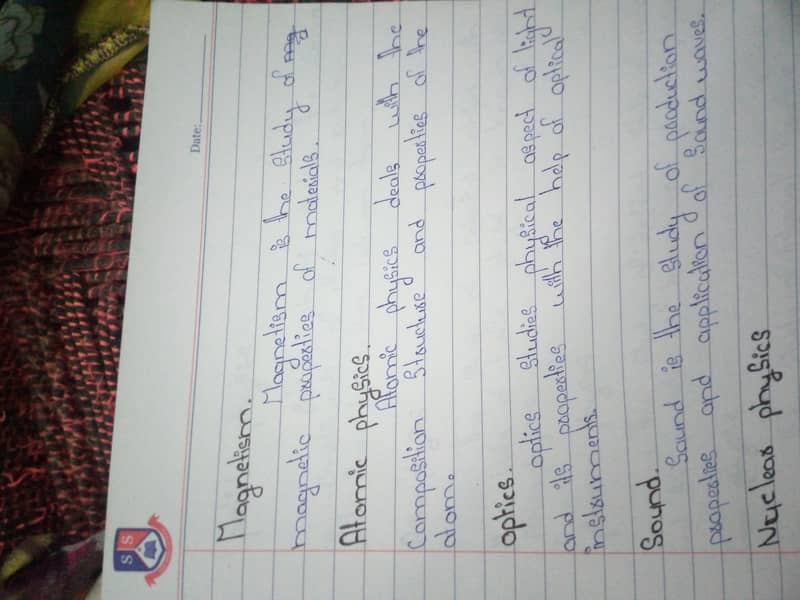 SS
Date:
Magnetism.
Magnetism is the study of mg
magnetic properties of materials.
Atomic physics.
Atomic physics deals with the
Composition structure and properties of the
atom.
optics.
optics studies physical aspect of light
and its properties with the help of optical
instruments.
Sound.
Sound is the study of production
properties and application of Sound waves.
Nuclear physics